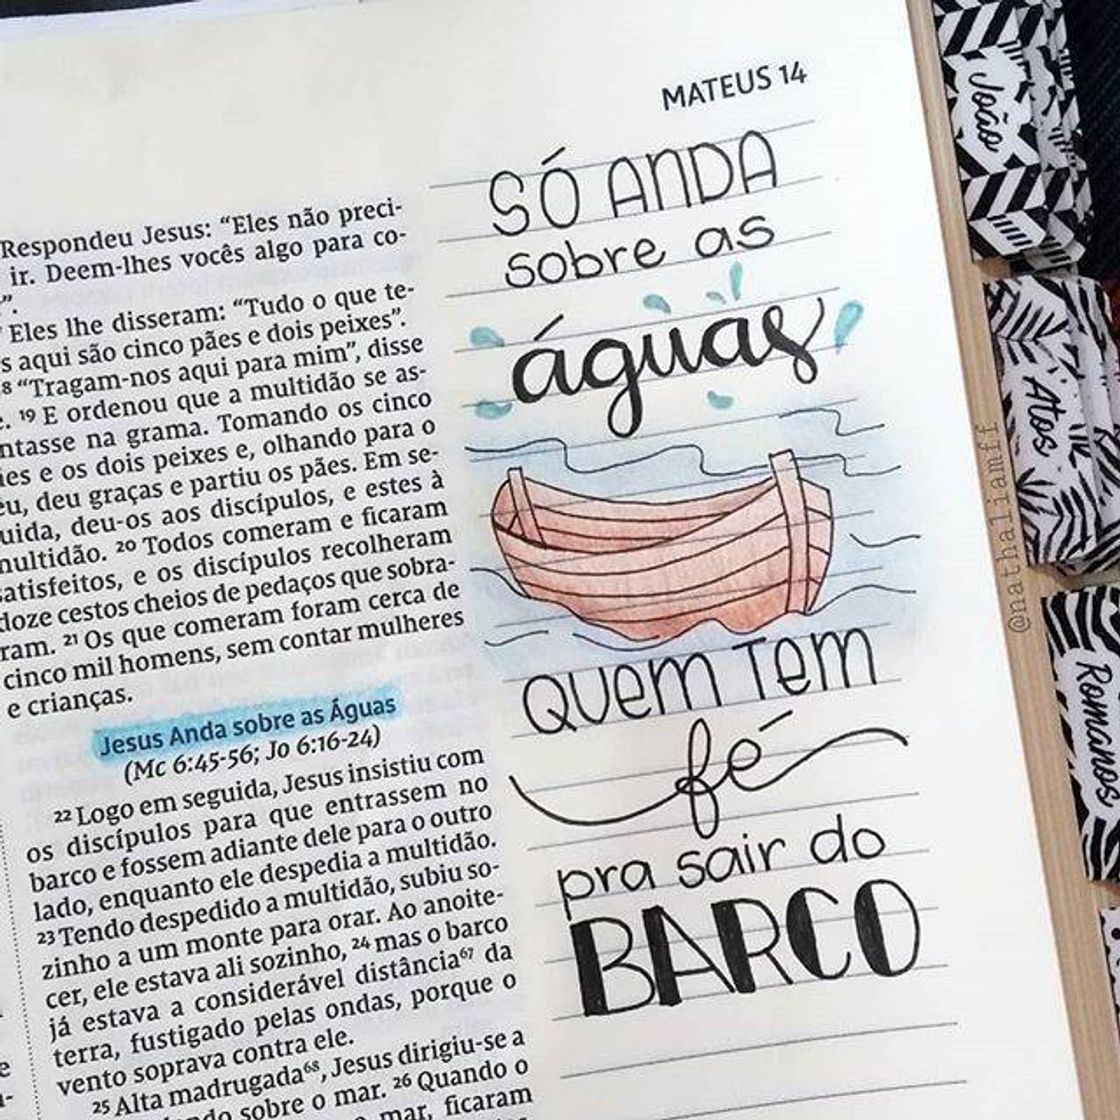 MATEUS 14
SÓ ANDA
sobre as
águas
quem tem
fé
pra sair do
BARCO
Respondeu Jesus: “Eles não preci-
ir. Deem-lhes vocês algo para co-
”.
Eles lhe disseram: “Tudo o que te-
s aqui são cinco pães e dois peixes”.
18 “Tragam-nos aqui para mim”, disse
e. 19 E ordenou que a multidão se as-
ntasse na grama. Tomando os cinco
ães e os dois peixes e, olhando para o
éu, deu graças e partiu os pães. Em se-
uida, deu-os aos discípulos, e estes à
multidão. 20 Todos comeram e ficaram
satisfeitos, e os discípulos recolheram
doze cestos cheios de pedaços que sobra-
ram. 21 Os que comeram foram cerca de
cinco mil homens, sem contar mulheres
e crianças.
Jesus Anda sobre as Águas
(Mc 6:45-56; Jo 6:16-24)
22 Logo em seguida, Jesus insistiu com
os discípulos para que entrassem no
barco e fossem adiante dele para o outro
lado, enquanto ele despedia a multidão.
23 Tendo despedido a multidão, subiu so-
zinho a um monte para orar. Ao anoite-
cer, ele estava ali sozinho, 24 mas o barco
já estava a considerável distância67 da
terra, fustigado pelas ondas, porque o
vento soprava contra ele.
25 Alta madrugada68, Jesus dirigiu-se a
ndo sobre o mar. 26 Quando o
mar, ficaram
João
Atos
Romanos
@nathaliamff